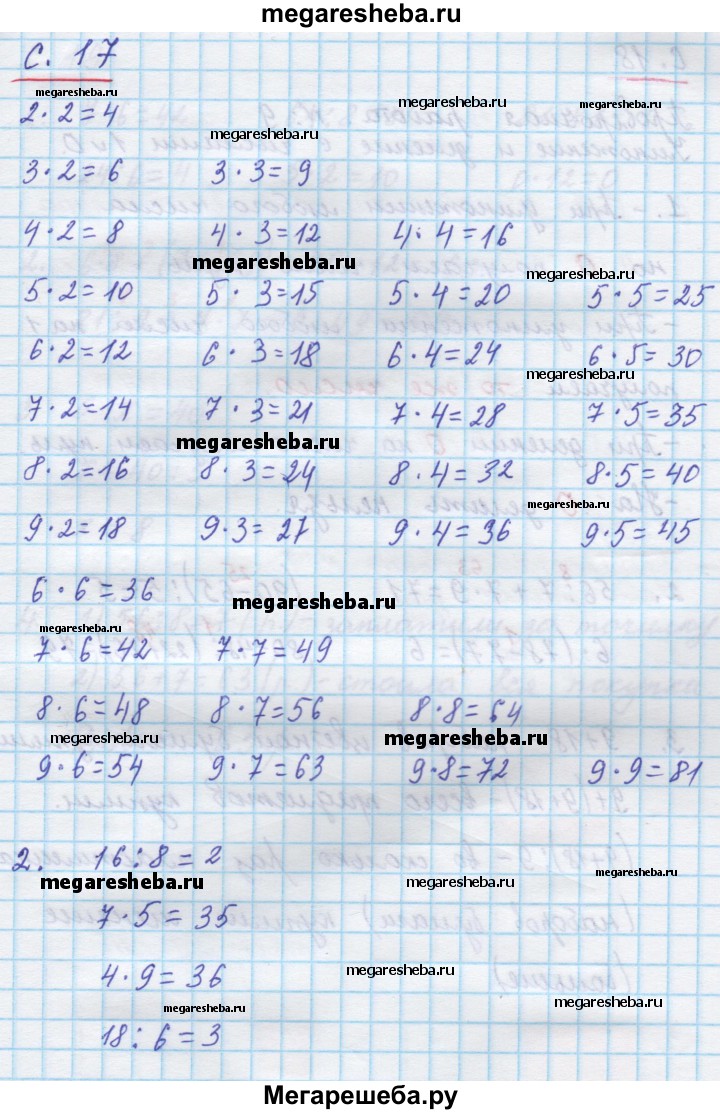 megaresheba.ru
с. 17
megaresheba.ru
megaresheba.ru
2 · 2 = 4
megaresheba.ru
megaresheba.ru
3 · 2 = 6 3 · 3 = 9
4 · 2 = 8 4 · 3 = 12 4 · 4 = 16
megaresheba.ru
megaresheba.ru
5 · 2 = 10 5 · 3 = 15 5 · 4 = 20 5 · 5 = 25
6 · 2 = 12 6 · 3 = 18 6 · 4 = 24 6 · 5 = 30
megaresheba.ru
7 · 2 = 14 7 · 3 = 21 7 · 4 = 28 7 · 5 = 35
megaresheba.ru
8 · 2 = 16 8 · 3 = 24 8 · 4 = 32 8 · 5 = 40
megaresheba.ru
9 · 2 = 18 9 · 3 = 27 9 · 4 = 36 9 · 5 = 45
6 · 6 = 36
megaresheba.ru
megaresheba.ru
7 · 6 = 42 7 · 7 = 49
8 · 6 = 48 8 · 7 = 56 8 · 8 = 64
megaresheba.ru
megaresheba.ru
9 · 6 = 54 9 · 7 = 63 9 · 8 = 72 9 · 9 = 81
2. 16 : 8 = 2
megaresheba.ru
megaresheba.ru
7 · 5 = 35
4 · 9 = 36
megaresheba.ru
megaresheba.ru
megaresheba.ru
18 : 6 = 3
Мегарешеба.ру